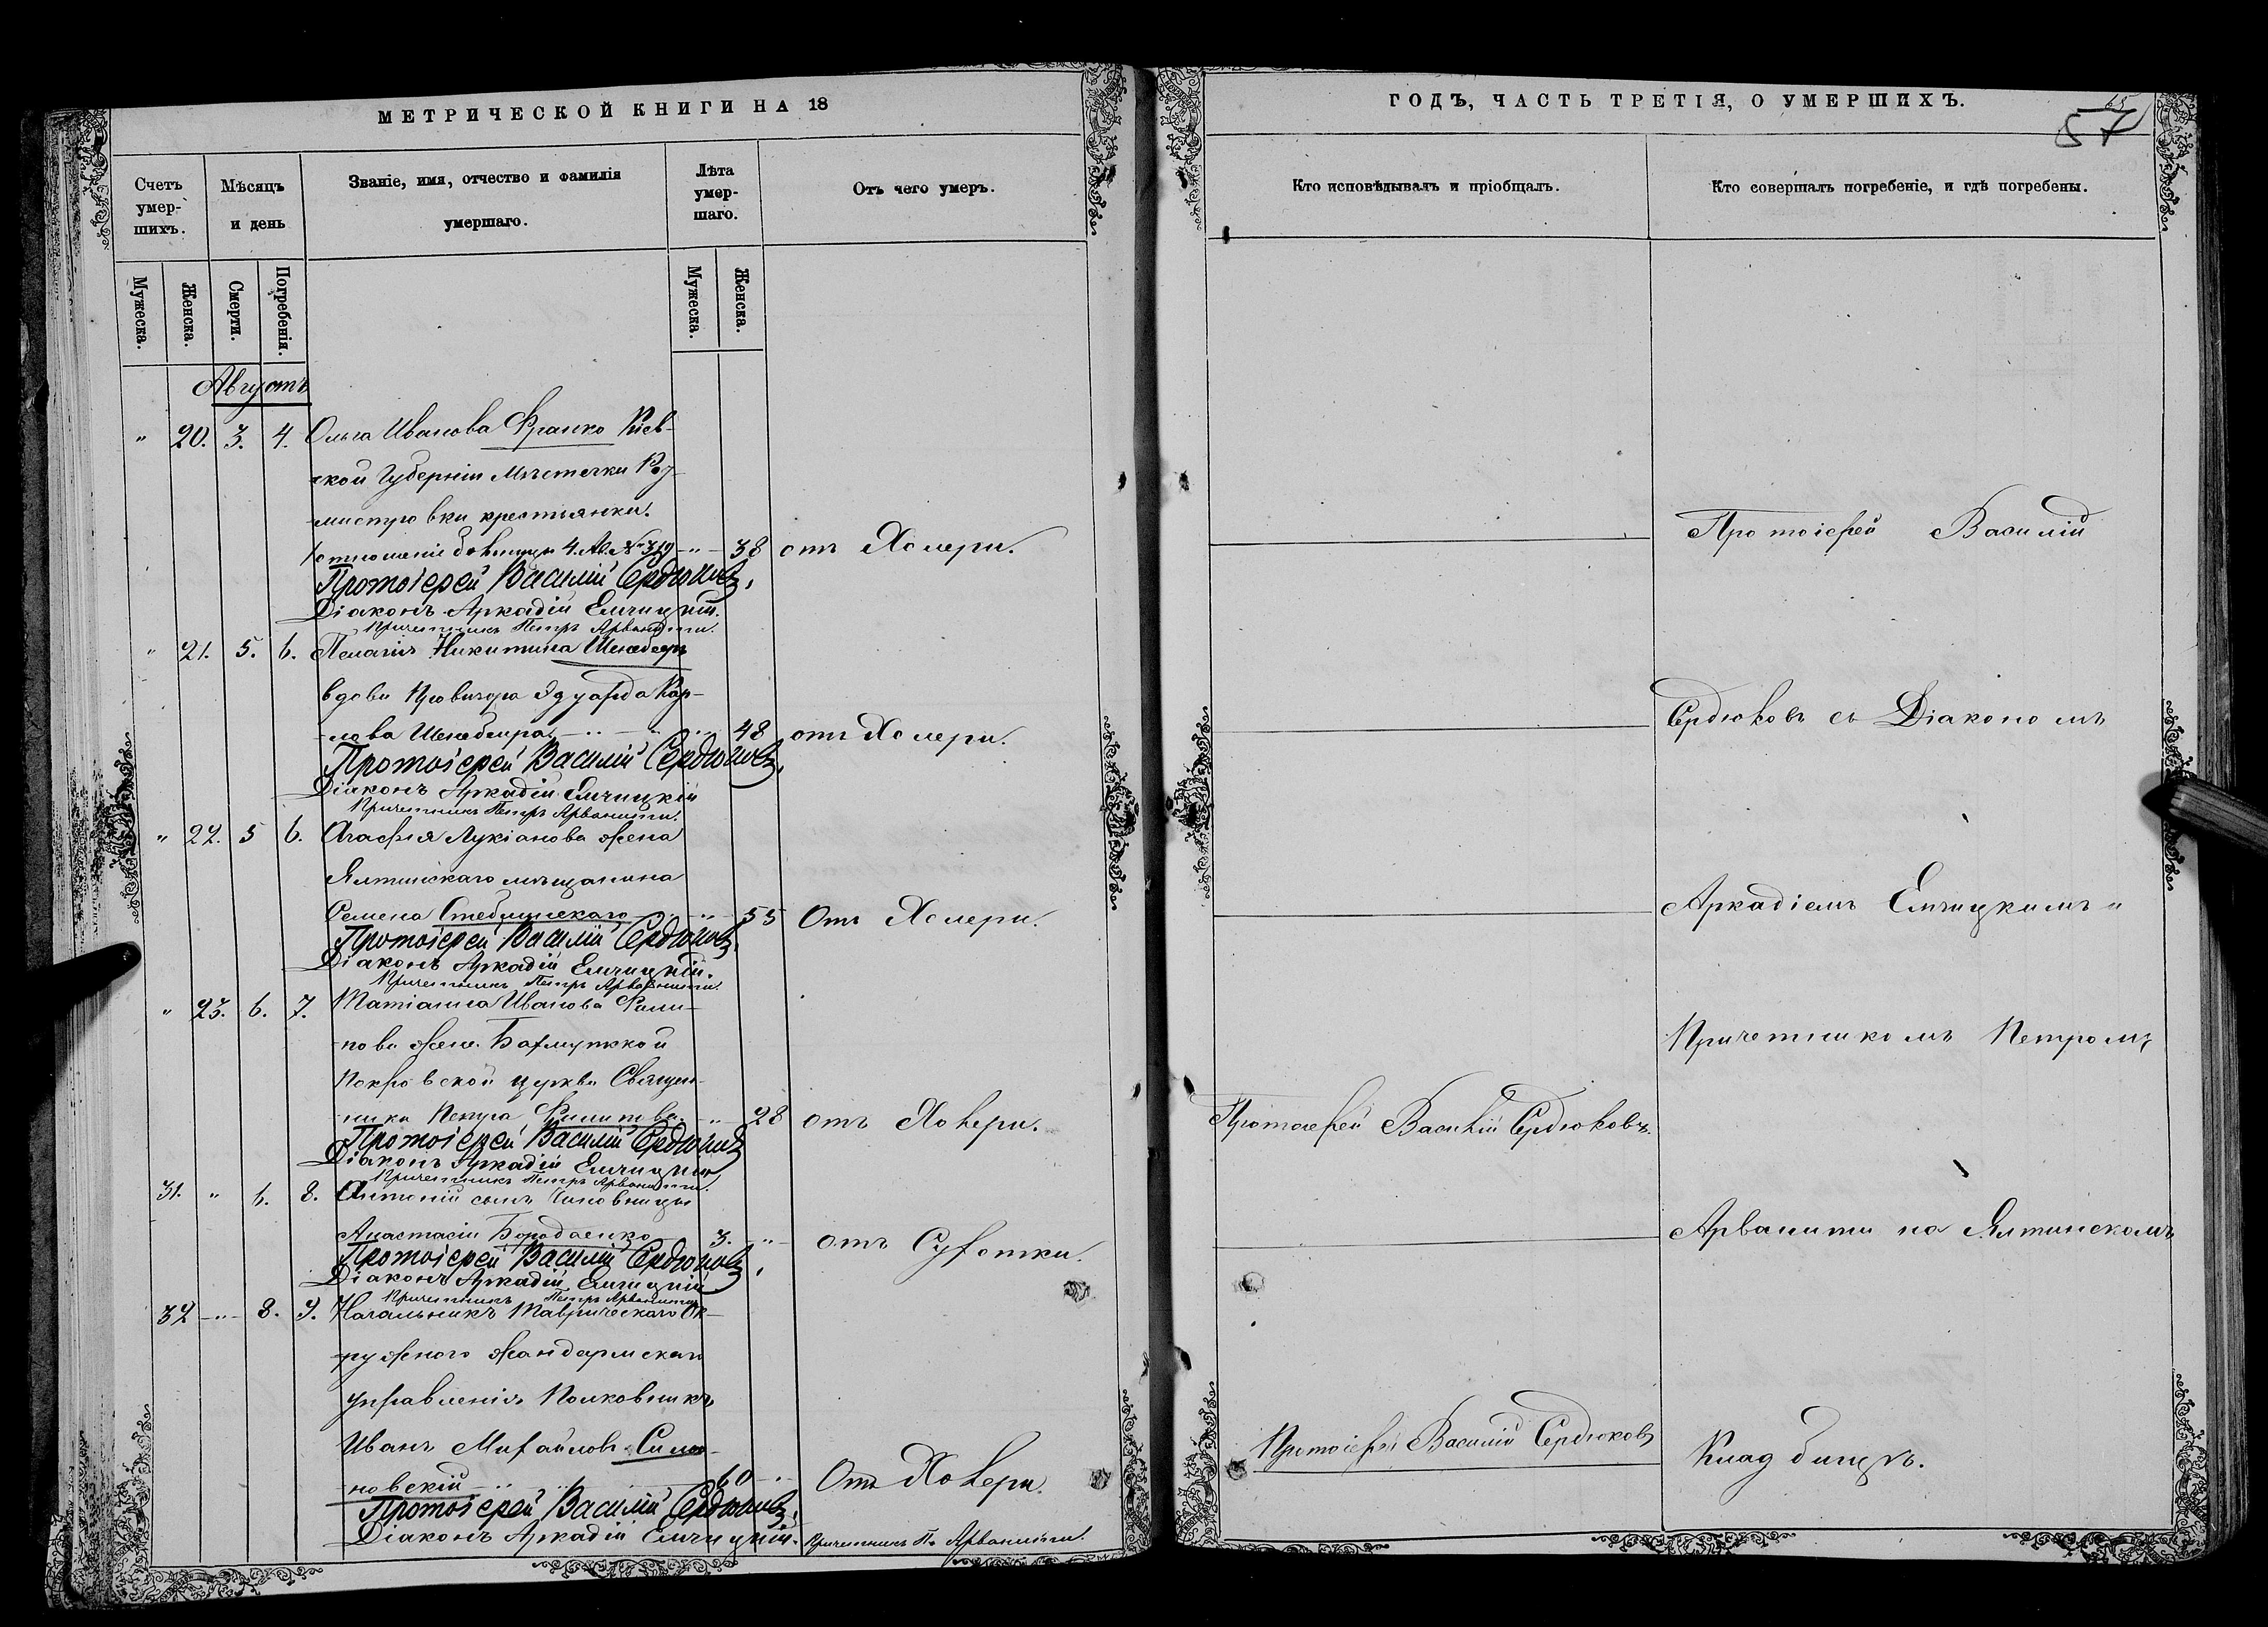 МЕТРИЧЕСКОЙ КНИГИ НА 18
Счетъ умер-шихъ.
Мѣсяцъ и день
Званіе, имя, отчество и фамилія умершаго.
Лѣта умер-шаго.
Отъ чего умеръ.
Мужеска.
Женска.
Смерти.
Погребенія.
Мужеска.
Женска.
Августъ
" 20. 3. 4. Ольга Иванова Франко Кіев-
ской Губерніи Мѣстечки
мистровки крестьянки.
отношеніе больницы 4. Ав. № 319 " 38 отъ Холеры.
Протоіерей Василій Сердюковъ,
Діаконъ Аркадій Емчицкій.
Причетникъ Петръ Арванити.
" 21. 5. 6. Пелагія Никитина
вдова Провизора Эдуарда Кар-
лова 48 отъ Холеры.
Протоіерей Василій Сердюковъ,
Діаконъ Аркадій Емчицкій
Причетникъ Петръ Арванити.
" 22. 5 6. Агафія Лукіанова жена
Ялтинскаго мѣщанина
Семена Стеблинскаго " 55 Отъ Холеры.
Протоіерей Василій Сердюковъ,
Діаконъ Аркадій Емчицкій.
Причетникъ Петръ Арванити.
" 23. 6. 7. Татіана Иванова Фили-
пова жена Бахмутской
Покровской церкви Священ-
ника Петра Филипова " 28 отъ Холеры.
Протоіерей Василій Сердюковъ
Діаконъ Аркадій Емчицкій
Причетникъ Петръ Арванити.
31. " 6. 8. Антоній сынъ Чиновницы
Анастасіи Бородаенко 3. " отъ Сухотки.
Протоіерей Василій Сердюковъ,
Діаконъ Аркадій Емчицкій
Причетникъ Петръ Арванити
32 " 8. 9. Начальникъ Таврическаго Ок-
ружного Жандармскаго
управленія Полковникъ
Иванъ Михайловъ
новскій 60 " Отъ Холеры.
Протоіерей Василій Сердюковъ,
Діаконъ Аркадій Емчицкій. Причетникъ П. Арванити.
ГОДЪ, ЧАСТЬ ТРЕТІЯ, О УМЕРШИХЪ.
65
57
Кто исповѣдывалъ и пріобщалъ.
Кто совершалъ погребеніе, и гдѣ погребены.
Протоіерей Василій
Сердюковъ съ Діакономъ
Аркадіемъ Емчицкимъ "
Причетникомъ Петромъ
Протоіерей Василій Сердюковъ.
Арванити на Ялтинскомъ
Протоіерей Василій Сердюковъ
Кладбищѣ.